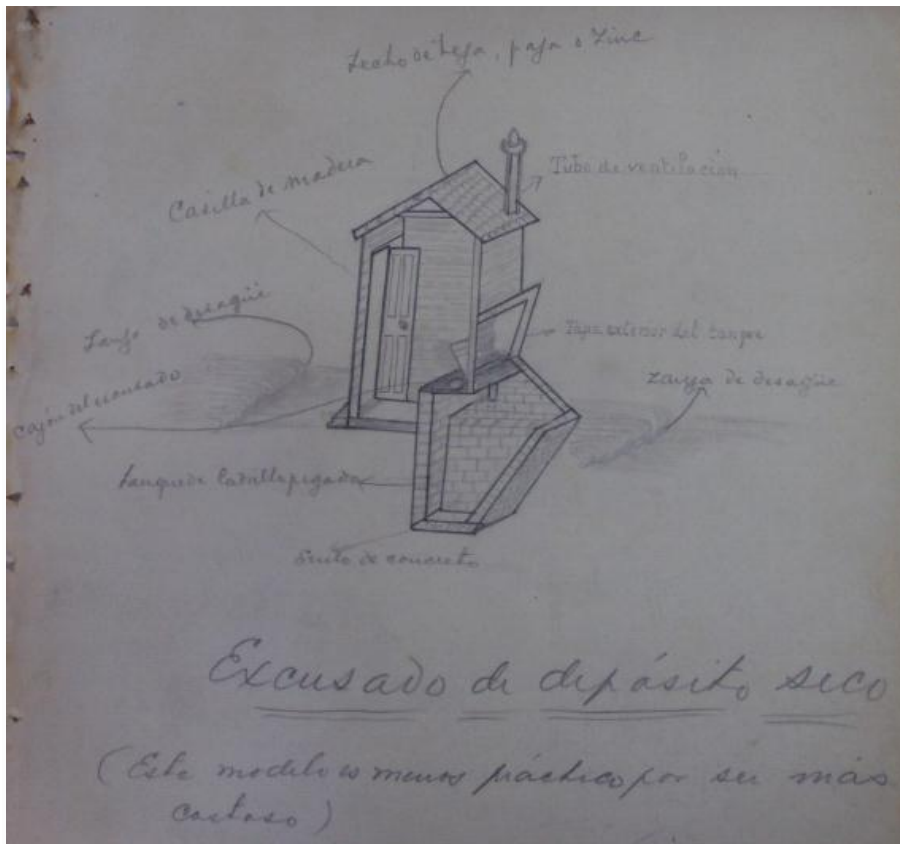 Techo de teja, paja o Zinc
Tubo de ventilación
Casilla de madera
Zanja de desagüe
Tapa exterior del tanque
Zanja de desagüe
Cajón del excusado
Tanque de ladrillo pegado
de concreto
Excusado de depósito seco
(Este modelo es menos práctico por ser más
costoso)